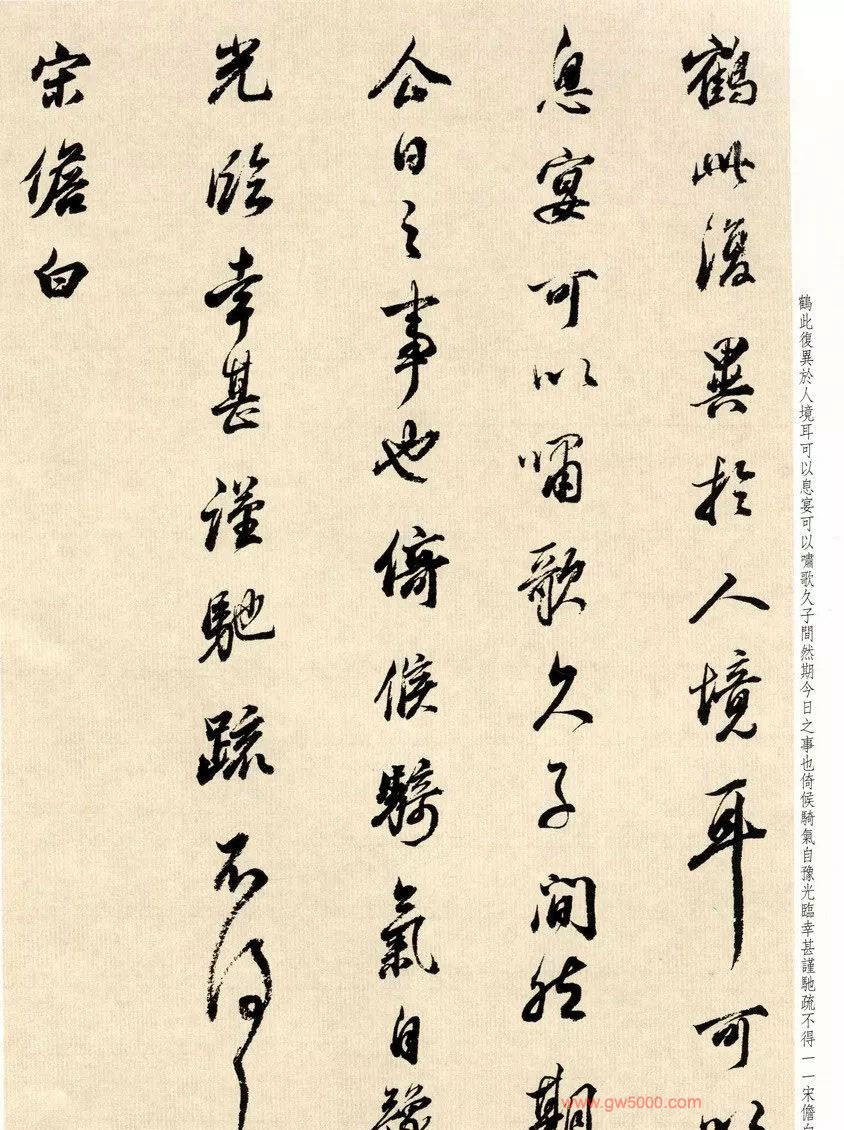 鶴此復異於人境耳可以
息宴可以嘯歌久子間然期
今日之事也倚候騎氣自豫
光臨幸甚謹馳疏不得一一
宋儋白
鶴此復異於人境耳可以息宴可以嘯歌久子間然期今日之事也倚候騎氣自豫光臨幸甚謹馳疏不得一一宋儋白
www.gw5000.com